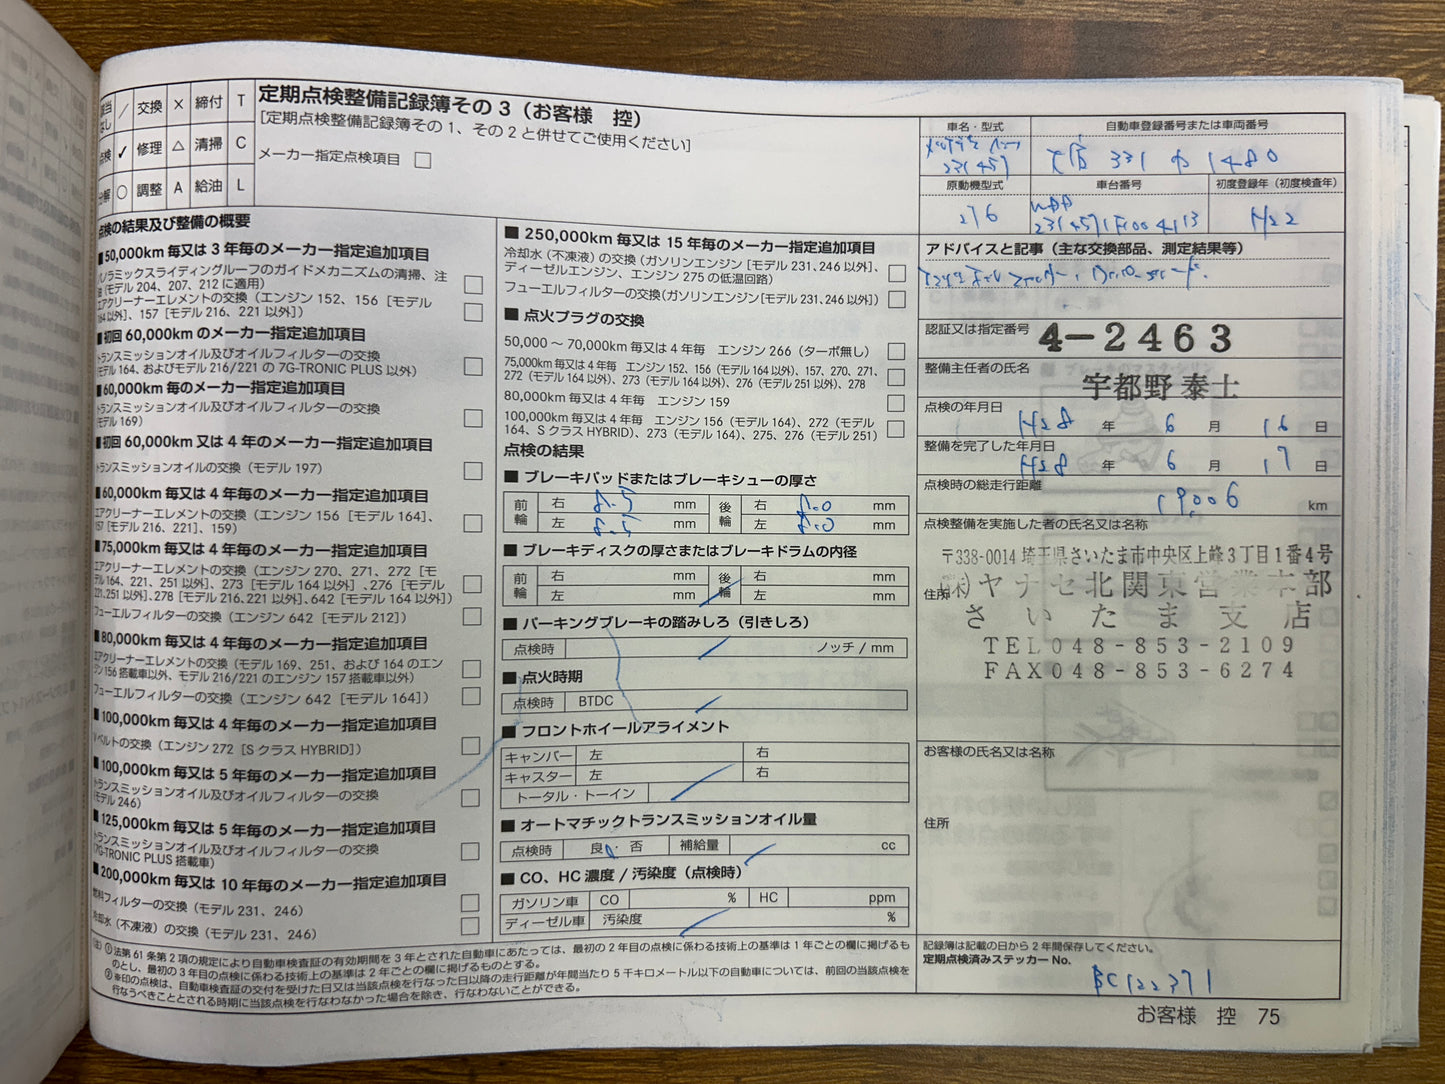 交換 × 締付 T
✓ 修理 △ 清掃 C
○ 調整 A 給油 L
定期点検整備記録簿その3（お客様　控）
[定期点検整備記録簿その1、その2と併せてご使用ください]
メーカー指定点検項目 □
点検の結果及び整備の概要
■50,000km 毎又は 3 年毎のメーカー指定追加項目
パノラミックスライディングルーフのガイドメカニズムの清掃、注
油（モデル 204、207、212 に適用）
エアクリーナーエレメントの交換（エンジン 152、156［モデル
164 以外］、157［モデル 216、221 以外］）
■初回 60,000km のメーカー指定追加項目
トランスミッションオイル及びオイルフィルターの交換
（モデル 164、およびモデル 216/221 の 7G-TRONIC PLUS 以外）
■60,000km 毎のメーカー指定追加項目
トランスミッションオイル及びオイルフィルターの交換
（モデル 169）
■初回 60,000km 又は 4 年毎のメーカー指定追加項目
トランスミッションオイルの交換（モデル 197）
■60,000km 毎又は 4 年毎のメーカー指定追加項目
エアクリーナーエレメントの交換（エンジン 156［モデル 164］、
157［モデル 216、221］、159）
■75,000km 毎又は 4 年毎のメーカー指定追加項目
エアクリーナーエレメントの交換（エンジン 270、271、272［モ
デル 164、221、251 以外］、273［モデル 164 以外］、276［モデル
221、251 以外］、278［モデル 216、221 以外］、642［モデル 164 以外］）
フューエルフィルターの交換（エンジン 642［モデル 212］）
■80,000km 毎又は 4 年毎のメーカー指定追加項目
エアクリーナーエレメントの交換（モデル 169、251、および 164 のエン
ジン 156 搭載車以外、モデル 216/221 のエンジン 157 搭載車以外）
フューエルフィルターの交換（エンジン 642［モデル 164］）
■100,000km 毎又は 4 年毎のメーカー指定追加項目
V ベルトの交換（エンジン 272［S クラス HYBRID］）
■100,000km 毎又は 5 年毎のメーカー指定追加項目
トランスミッションオイル及びオイルフィルターの交換
（モデル 246）
■125,000km 毎又は 5 年毎のメーカー指定追加項目
トランスミッションオイル及びオイルフィルターの交換
（7G-TRONIC PLUS 搭載車）
■200,000km 毎又は 10 年毎のメーカー指定追加項目
燃料フィルターの交換（モデル 231、246）
冷却水（不凍液）の交換（モデル 231、246）
■250,000km 毎又は 15 年毎のメーカー指定追加項目
冷却水（不凍液）の交換（ガソリンエンジン［モデル 231、246 以外］、
ディーゼルエンジン、エンジン 275 の低温回路）
フューエルフィルターの交換（ガソリンエンジン［モデル 231、246 以外］）
■点火プラグの交換
50,000 ～ 70,000km 毎又は 4 年毎　エンジン 266（ターボ無し）
75,000km 毎又は 4 年毎　エンジン 152、156（モデル 164 以外）、157、270、271、
272（モデル 164 以外）、273（モデル 164 以外）、276（モデル 251 以外）、278
80,000km 毎又は 4 年毎　エンジン 159
100,000km 毎又は 4 年毎　エンジン 156（モデル 164）、272（モデル
164、S クラス HYBRID）、273（モデル 164）、275、276（モデル 251）
点検の結果
■ブレーキパッドまたはブレーキシューの厚さ
前輪 右 8.5 mm 後輪 右 8.0 mm
左 8.5 mm 左 8.0 mm
■ブレーキディスクの厚さまたはブレーキドラムの内径
前輪 右 mm 後輪 右 mm
左 mm 左 mm
■パーキングブレーキの踏みしろ（引きしろ）
点検時 ノッチ / mm
■点火時期
点検時 BTDC
■フロントホイールアライメント
キャンバー 左 右
キャスター 左 右
トータル・トーイン
■オートマチックトランスミッションオイル量
点検時 良・否 補給量 cc
■CO、HC 濃度 / 汚染度（点検時）
ガソリン車 CO % HC ppm
ディーゼル車 汚染度 %
車名・型式 自動車登録番号または車両番号
231457 331 1480
原動機型式 車台番号 初度登録年（初度検査年）
276 WDD H22
アドバイスと記事（主な交換部品、測定結果等）
認証又は指定番号 4-2463
整備主任者の氏名 宇都野 泰士
点検の年月日 H28 年 6 月 16 日
整備を完了した年月日 H28 年 6 月 17 日
点検時の総走行距離 19,006 km
点検整備を実施した者の氏名又は名称
〒338-0014 埼玉県さいたま市中央区上峰3丁目1番4号
住所 ㈱ヤナセ北関東営業本部
さいたま支店
TEL048-853-2109
FAX048-853-6274
お客様の氏名又は名称
住所
記録簿は記載の日から 2 年間保存してください。
定期点検済みステッカー No.
BC122371
（注）① 法第 61 条第 2 項の規定により自動車検査証の有効期間を 3 年とされた自動車にあたっては、最初の 2 年目の点検に係わる技術上の基準は 1 年ごとの欄に掲げるも
のとし、最初の 3 年目の点検に係わる技術上の基準は 2 年ごとの欄に掲げるものとする。
② ※印の点検は、自動車検査証の交付を受けた日又は当該点検を行なった日以降の走行距離が年間当たり 5 千キロメートル以下の自動車については、前回の当該点検を
行なうべきこととされる時期に当該点検を行なわなかった場合を除き、行なわないことができる。
お客様　控　75